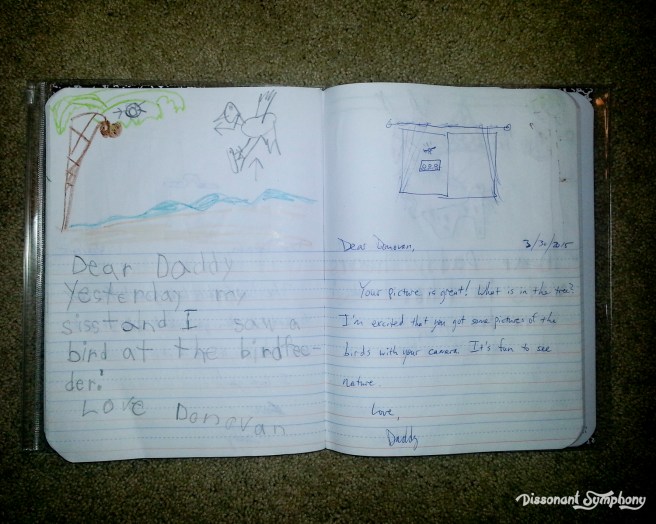 Dear Daddy
Yesterday my
sisst and I saw a
bird at the birdfee-
der!
Love Donovan
Dear Donovan,
3/30/2015
Your picture is great! What is in the tree?
I'm excited that you got some pictures of the
birds with your camera. It's fun to see
nature.
Love,
Daddy
Dissonant Symphony